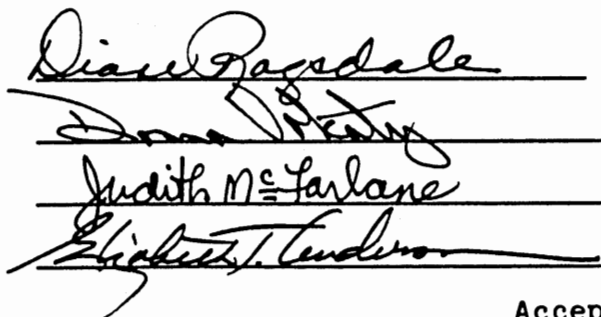 Diane Ragsdale
Judith McFarlane
Elizabeth T. Anderson
Accep